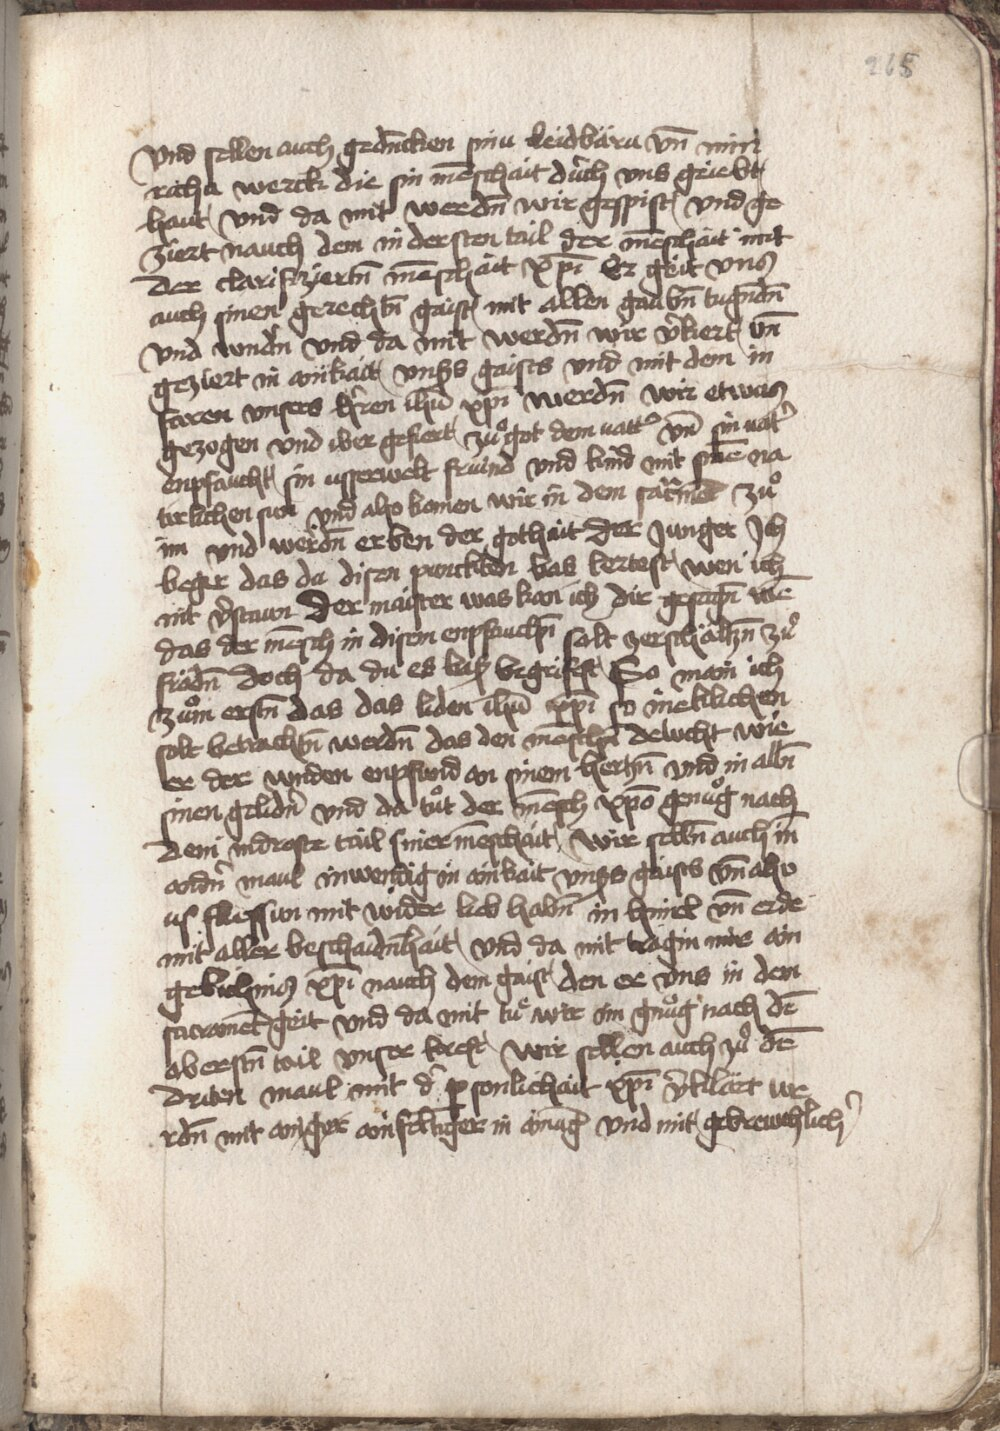 265
Vnd sellen auch gedencken sinu leidbäru vñ min
richu werck die sin mēschait durch vns griebt
haut Vnd da mit werdn̄ wir gespist vnd ge
ziert nauch dem indersten tail der mēschait mit
der clarifiziertn̄ mēschait xp̄i Er geit vnns
auch sinen gerechtn̄ gaist mit allen gaubn̄ tugndn̄
vnd vnd da mit werdn̄ wir v̾kiert vn̄
geziert in ainikait vnsers gaists vnd mit dem in
faren vnsers h̾ren ih̄u xp̄i werdn̄ wir etwas
gezogen vnd iber gefiert zuͦ got dem vatt̾ vn̄ sin vat̾
enpfaucht sin usserwelt fruͥnd vnd kind mit sine na
turlichen sun vnd also komen wir in dem sacrmēt zuͦ
im vnd werdn̄ erben der gothait Der Junger Ich
beger das da disen punckten bas lertest wen ich
nit v̾staun Der maister was kan ich dir gesagn̄ we
das der mēsch in disem enpfauchn̄ solt zuͦ
fridn̄ Doch da du es bas begriffest So main ich
zuͦm erstn̄ das das liden ih̄u xp̄i so meklichen
solt betrachtn̄ werdn̄ das den mēschn̄ deucht wie
er der wnden enpfind an sinem hertzn̄ vnd in alln̄
sinen gelidn̄ vnd da tuͦt der mēsch xp̄o genuͦg nach
dem indroste tail siner mēschait Wir selln̄ auch in
andn̾ maul inwendig in ainikait vnsers gaists vn̄ also
us flussun mit wider lieb habn̄ in himel vn̄ erde
mit aller beschaidnhait vnd da mit tragin mir ain
gelichnus xp̄i nauch dem gaist den er vns in dem
sacramēt geit vnd da mit tuͤ wir im gnuͦg nach dē
aberstn̄ tail vnser kreft Wir sellen auch zuͦ dē
driten maul mit d̾ personlichait xp̄i v̾klärt we
rdn̄ mit ainiger ainfaltiger in vnd mit gebreuchlich̾